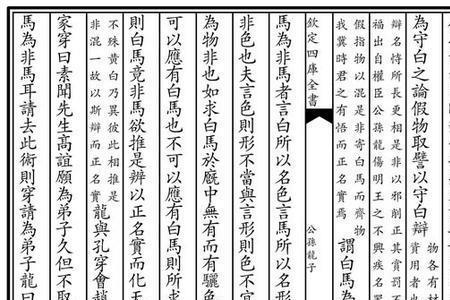 為守白之論假物取譬以守白辯
物各有材
資用者也
辯名恃所長更相是非以邪削正其賞罰
福出自權臣公孫龍傷明王之不興疾名器
假指物以混是非寄白馬而齊物
我冀時君之有悟而正名實焉
謂白馬為
欽定四庫全書
公孫龍子
馬為非馬者言白所以名色言馬所以名
非色也夫言色則形不當與言形則色不宜
為物非也如求白馬於廐中無有而有驪色
可以應有白馬也不可以應有白馬則所求
則白馬竟非馬欲推是辨以正名實而化天
不殊黄白乃異彼此相推是
非混一故以斯辯而正名實
龍與孔穿會趙
家穿曰素聞先生高誼願為弟子久但不取
馬為非馬耳請去此術則穿請為弟子龍曰